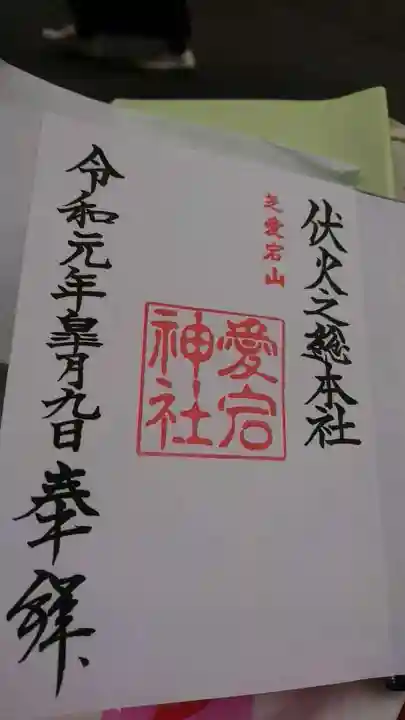 伏火之総本社
芝愛宕山
愛宕
神社
令和元年皐月九日
奉拝